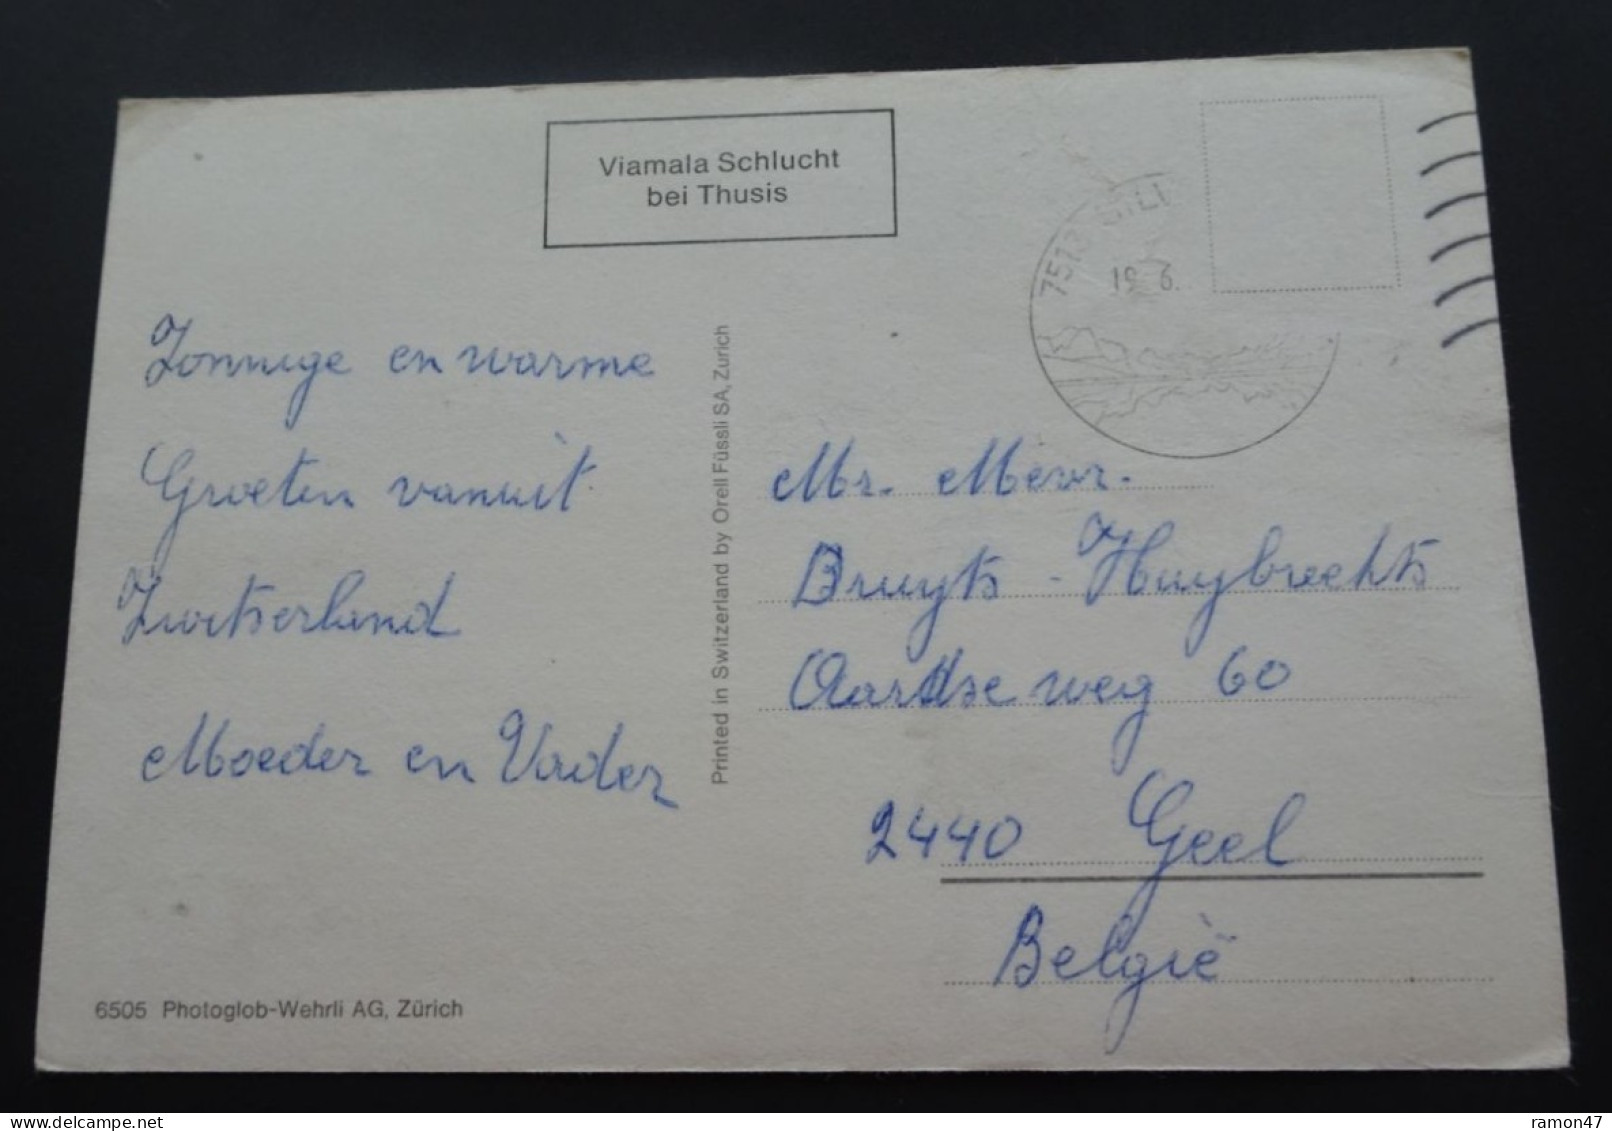 Viamala Schlucht
bei Thusis
19 6.
Zonnige en warme
Groeten vanuit
Zwitserland
Moeder en Vader
Printed in Switzerland by Orell Füssli SA, Zurich
Mr. Mevr.
Bruyts - Huybrechts
Aardse weg 60
2440 Geel
België
6505 Photoglob-Wehrli AG, Zürich
ramon47